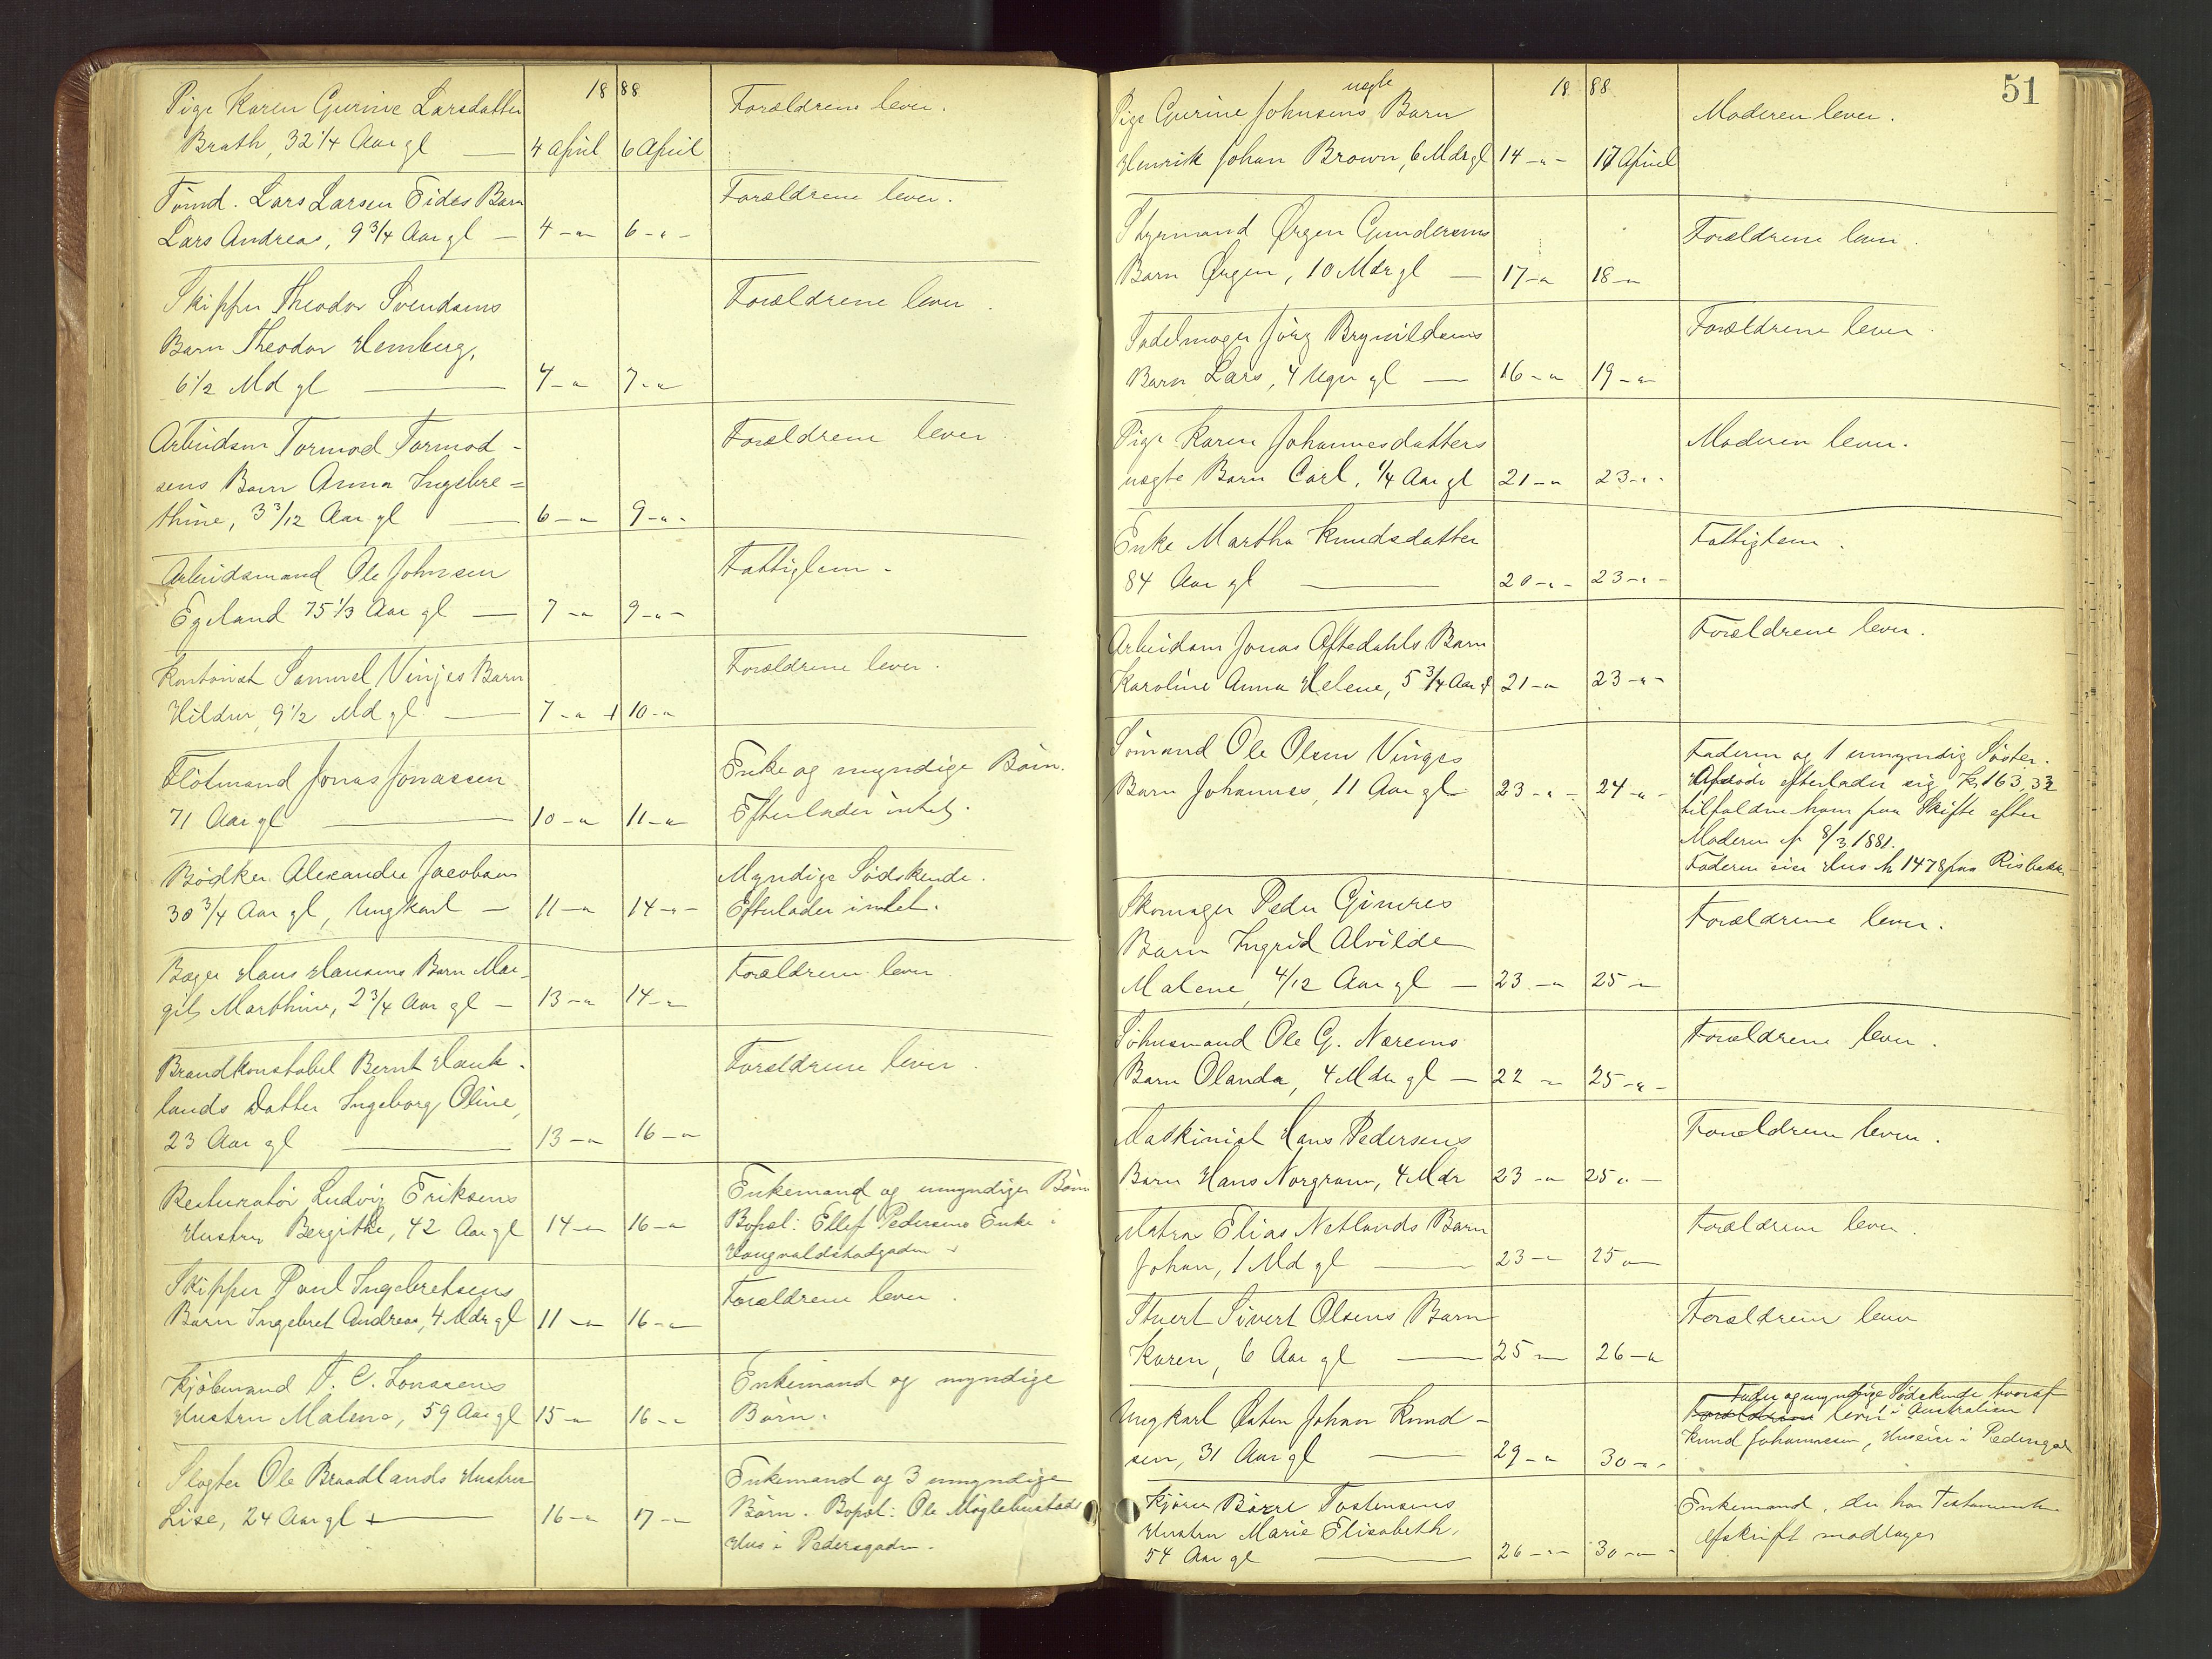 18 88
Pige Karen Gurine Larsdatter
Brath, 32 1/4 Aar gl — 4 April 6 April
Forældrene lever.
Tømd. Lars Larsen Eides Barn
Lars Andreas, 9 3/4 Aar gl — 4 -"- 6 -"-
Forældrene lever.
Skipper Theodor Svendsens
Barn Theodor Hemberg,
6 1/2 Md gl — 4 -"- 7 -"-
Forældrene lever.
Arbeidsm Tormod Tormod-
sens Barn Anna Ingebre=
thine, 3 3/12 Aar gl — 6 -"- 9 -"-
Forældrene lever.
Arbeidsmand Ole Johnsen
Egeland 75 1/3 Aar gl — 7 -"- 9 -"-
Fattiglem.
Kontorist Samuel Vinjes Barn
Hildur, 9 1/2 Md gl — 7 -"- + 10 -"-
Forældrene lever.
Flötmand Jonas Jonassen
71 Aar gl — 10 -"- 11 -"-
Enke og myndige Börn.
Efterlader intet.
Bödker Alexander Jacobsen
30 3/4 Aar gl, Ungkarl — 11 -"- 14 -"-
Myndige Södskende.
Efterlader intet.
Bager Hans Hansens Barn Mar-
git Marthine, 2 3/4 Aar gl — 13 -"- 14 -"-
Forældrene lever
Brandkonstabel Bernt Hauk-
lands Datter Ingeborg Oline,
23 Aar gl — 13 -"- 16 -"-
Forældrene lever.
Restauratör Ludvig Eriksens
Hustru Bergithe, 42 Aar gl 14 -"- 16 -"-
Enkemand og umyndige Börn
Bopæl: Ellef Pedersens Enke i
Haugvaldstadgaden +
Skipper Paul Ingebretsens
Barn Ingebret Andreas, 4 Mdr gl 11 -"- 16 -"-
Forældrene lever.
Kjöbmand T. C. Jonasens
Hustru Malene, 59 Aar gl 15 -"- 16 -"-
Enkemand og myndige
Börn.
Slagter Ole Braadlands Hustru
Lise, 24 Aar gl + — 16 -"- 17 -"-
Enkemand og 3 umyndige
Börn. Bopæl: Ole Möglebustads
Hus i Pedersgaden.
51
18 88
uegte
Pige Gurine Johnsens Barn
Henrik Johan Brown, 6 Mdr gl 14 -"- 17 April
Moderen lever.
Styrmand Ørgen Gundersens
Barn Ørgen, 10 Mdr gl — 17 -"- 18 -"-
Forældrene lever.
Sadelmager Jörg Brynildsens
Barn Lars, 4 Uger gl — 16 -"- 19 -"-
Forældrene lever.
Pige Karen Johannesdatters
uegte Barn Carl, 1/4 Aar gl 21 -"- 23 -"-
Moderen lever.
Enke Martha Knudsdatter
84 Aar gl — 20 -"- 23 -"-
Fattiglem.
Arbeidsm Jonas Oftedahls Barn
Karoline Anna Helene, 5 3/4 Aar gl 21 -"- 23 -"-
Forældrene lever.
Sömand Ole Olsen Vinges
Barn Johannes, 11 Aar gl 23 -"- 24 -"-
Faderen og 1 umyndig Söster.
Afdöde efterlader sig Kr 163,33
tilfalden ham paa Skifte efter
Moderen af 8/3 1881.
Faderen eier Hus № 1478 paa Risbakk
Skomager Peder Gimres
Barn Ingrid Alvilde
Malene, 4/12 Aar gl — 23 -"- 25 -"-
Forældrene lever.
Söhusmand Ole G. Nærems
Barn Olanda, 4 Mdr gl — 22 -"- 25 -"-
Forældrene lever.
Maskinist Hans Pedersens
Barn Hans Norgrann, 4 Mdr 23 -"- 25 -"-
Forældrene lever.
Matra Elias Netlands Barn
Johan, 1 Md gl — 23 -"- 25 -"-
Forældrene lever.
Stuert Sivert Olsens Barn
Karen, 6 Aar gl — 25 -"- 26 -"-
Forældrene lever
Ungkarl Østen Johan Knud-
sen, 31 Aar gl — 29 -"- 30 -"-
Fader og myndige Södskende hvoraf
Forældrene lever i Australien
Knud Johannesen, Huseier i Pedersgad
Kjörer Börre Tostensens
Hustru Marie Elisabeth,
54 Aar gl — 26 -"- 30 -"-
Enkemand, der har Testamente
Afskrift modtages